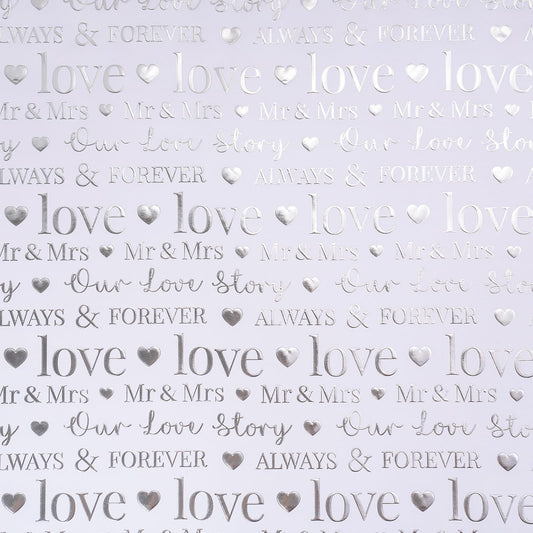 Our Love Story
ALWAYS & FOREVER ALWAYS & FOREVER
love love love love
Mr & Mrs Mr & Mrs Mr & Mrs Mr & Mrs
Our Love Story Our Love Story
ALWAYS & FOREVER ALWAYS & FOREVER
love love love love
Mr & Mrs Mr & Mrs Mr & Mrs Mr & Mrs
Our Love Story Our Love Story
ALWAYS & FOREVER ALWAYS & FOREVER
love love love love
Mr & Mrs Mr & Mrs Mr & Mrs Mr & Mrs
Our Love Story Our Love Story
ALWAYS & FOREVER ALWAYS & FOREVER
love love love love
Mr & Mrs Mr & Mrs Mr & Mrs